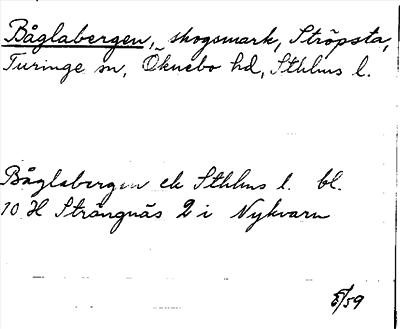 Båglabergen, skogsmark, Ströpsta,
Turinge sn, Öknebo hd, Sthlms l.
Båglabergen ek Sthlms l. bl.
10 H Strängnäs 2 i Nykvarn
5/59